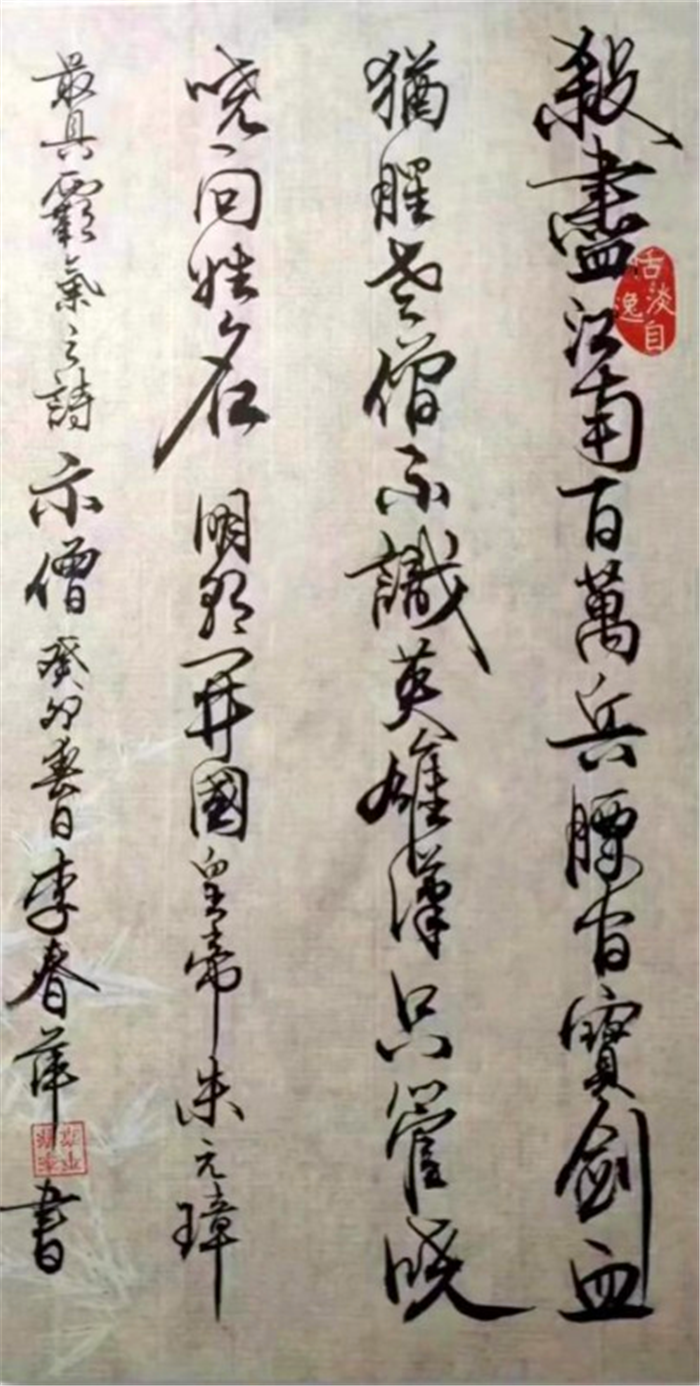 殺盡江南百萬兵腰有寶劍血
猶腥老僧不識英雄漢只管曉
曉問姓名 明朝開國皇帝朱元璋
最具霸氣之詩 示僧 癸卯春日李春萍
書
恬淡自逸